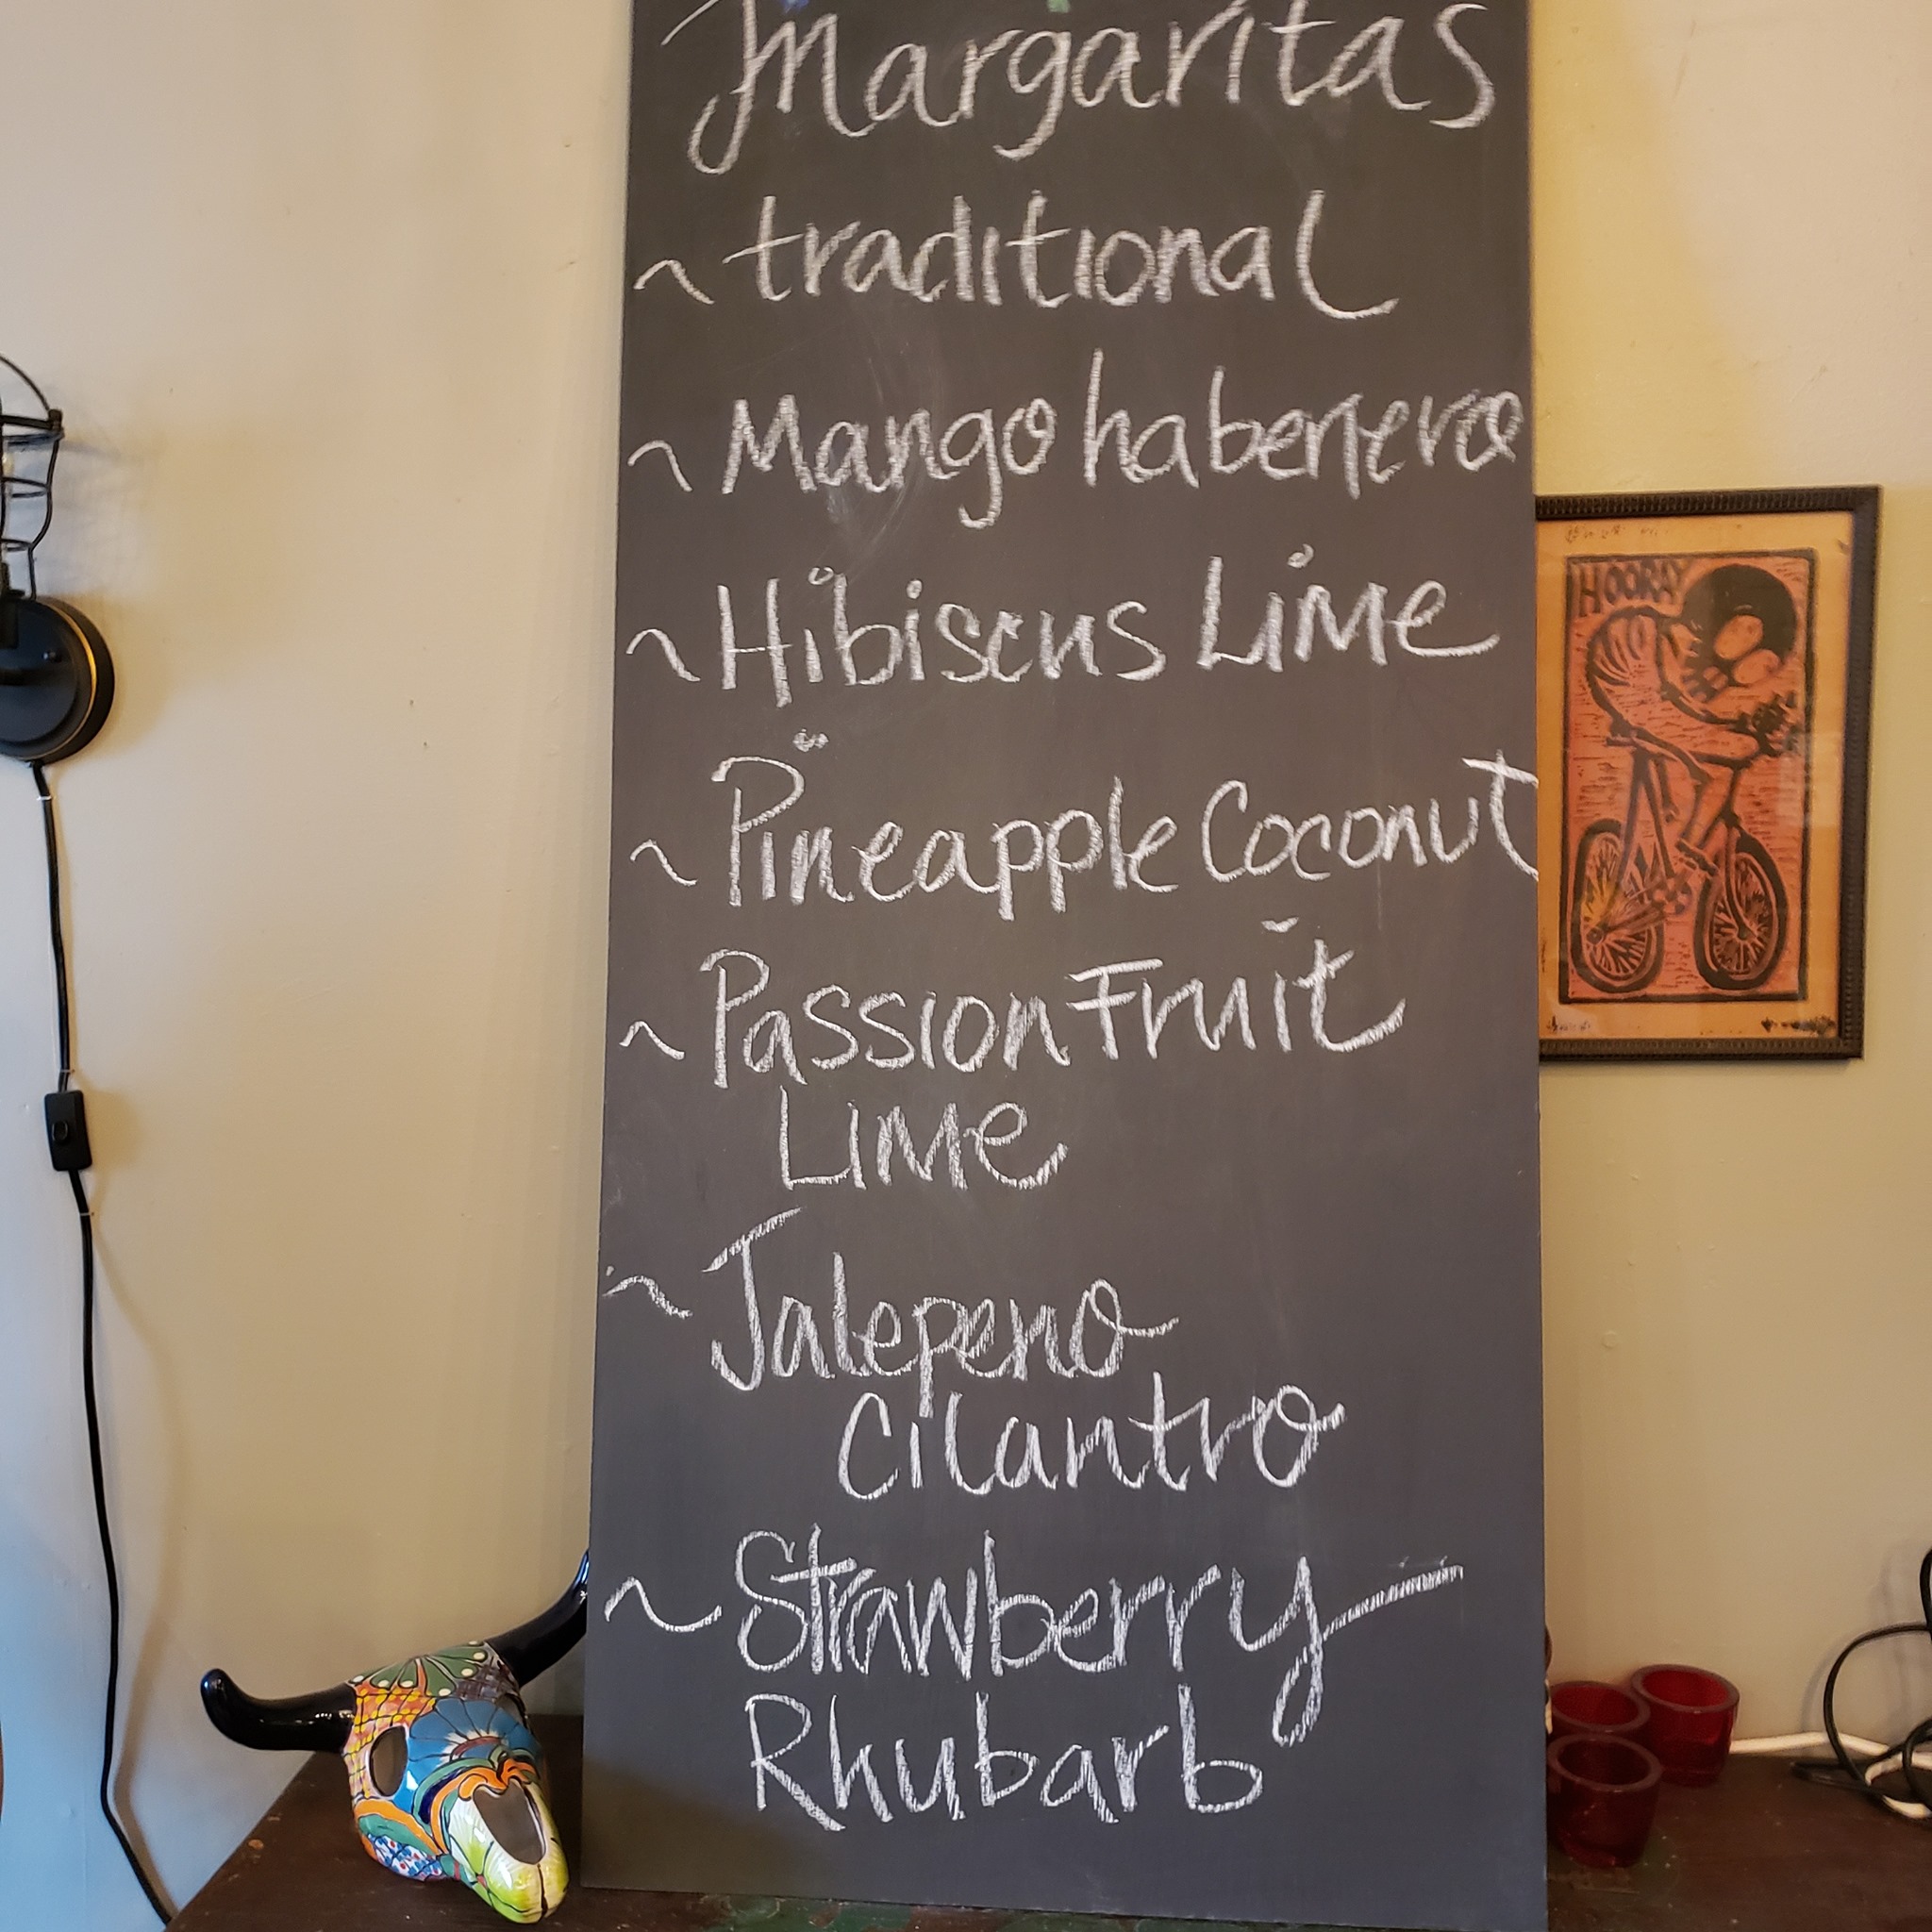 Margaritas
~ traditional
~ Mango habenero
~ Hibiscus Lime
~ Pineapple Coconut
~ Passion Fruit
Lime
~ Jalepeno
Cilantro
~ Strawberry
Rhubarb
HOORAY